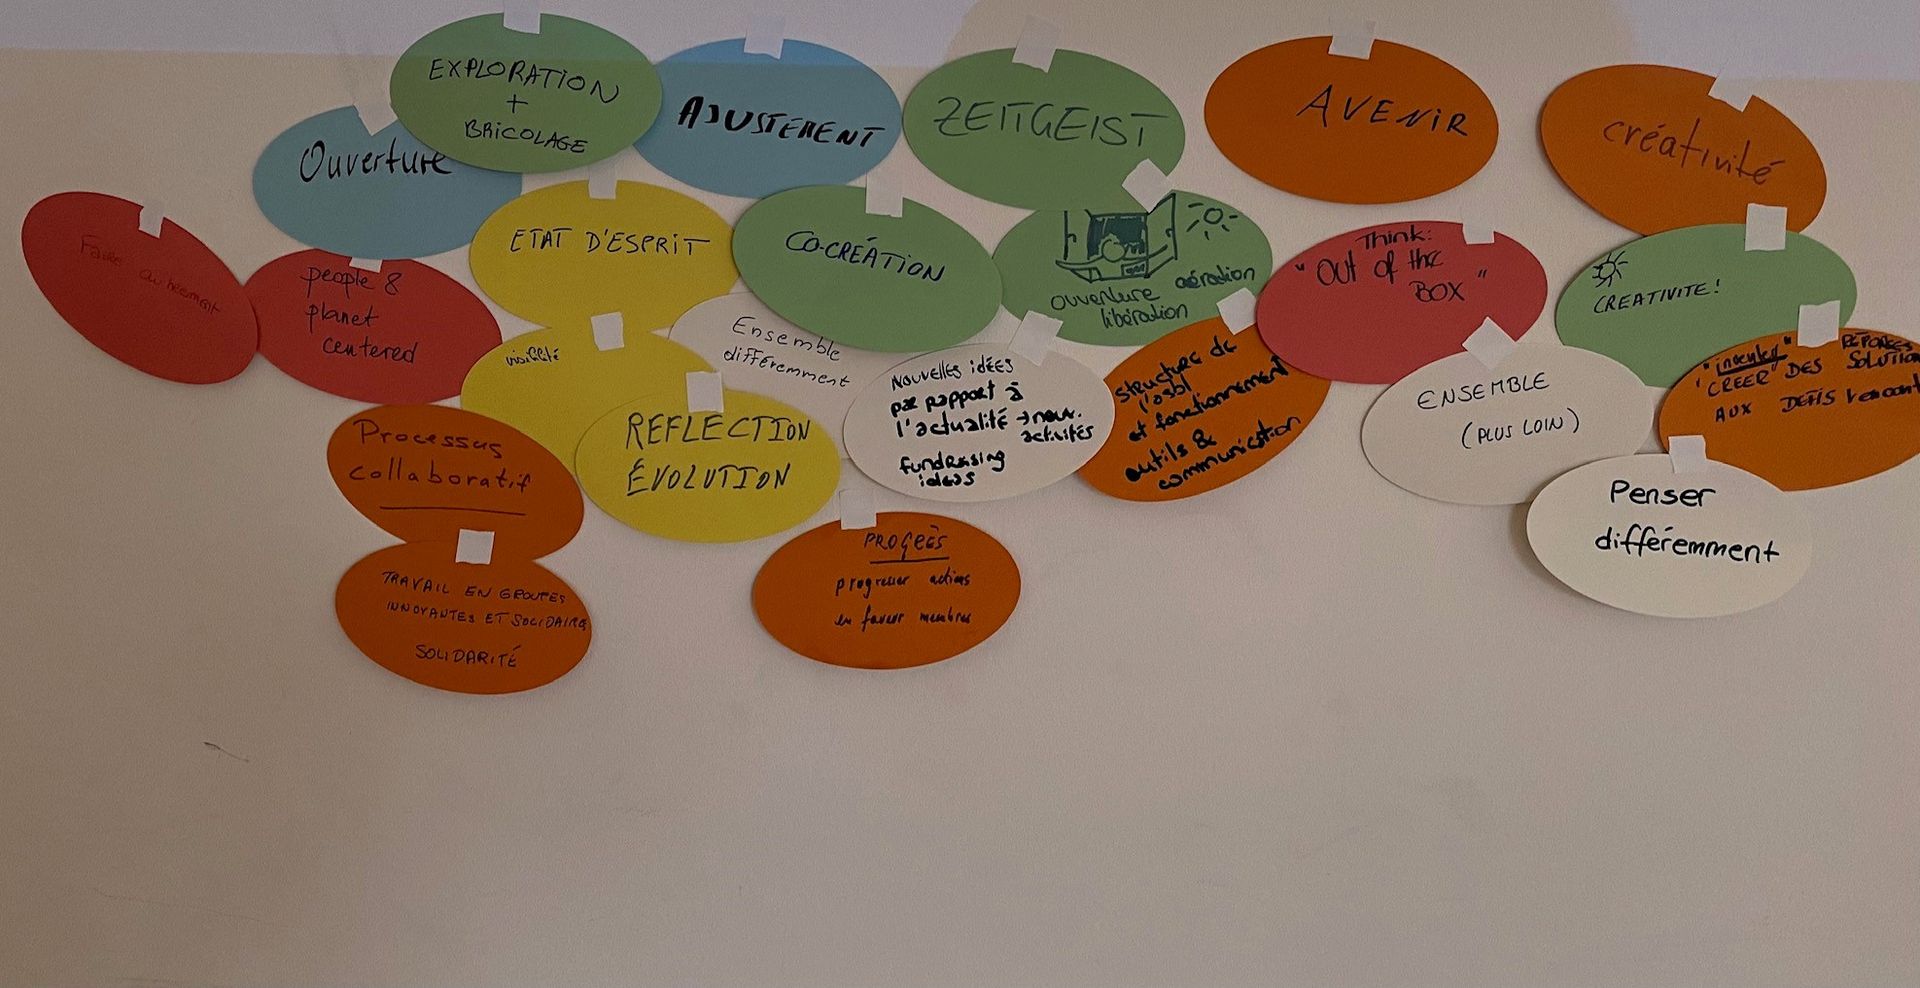 EXPLORATION
+
BRICOLAGE
AJUSTEMENT
ZEITGEIST
AVENIR
créativité
Ouverture
Faire autrement
people &
planet
centered
ETAT D'ESPRIT
CO-CRÉATION
ouverture aération
libération
Think:
"OUT of the
BOX"
CREATIVITE!
visibilité
Ensemble
différemment
NOUVELLES idées
par rapport à
l'actualité → nouv.
activités
fundraising
ideas
structure de
l'asbl
et fonctionnement
outils &
communication
ENSEMBLE
(PLUS LOIN)
"inventer"
CREER DES SOLUTION
AUX DEFIS
Processus
collaboratif
REFLECTION
ÉVOLUTION
Penser
différemment
TRAVAIL EN GROUPES
INNOVANTES ET SOLIDAIRE
SOLIDARITÉ
PROGRÈS
progresser actions
en faveur membres